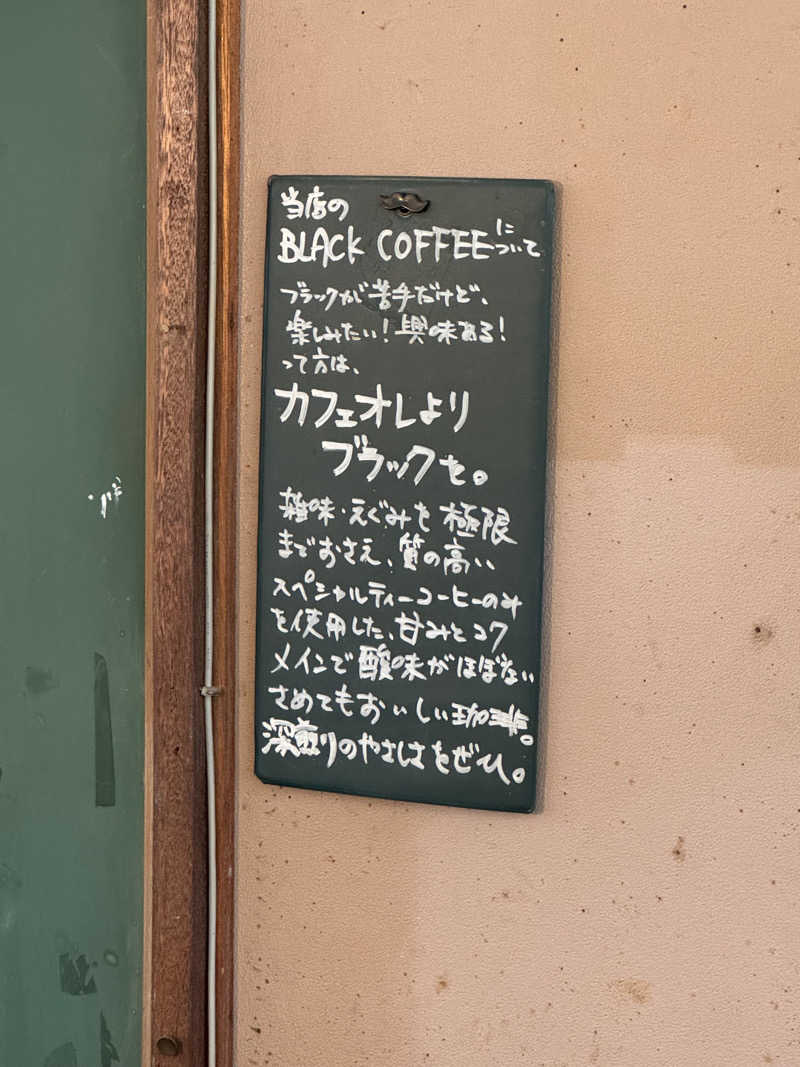 当店の
BLACK COFFEEについて
ブラックが苦手だけど、
楽しみたい！興味ある！
って方は、
カフェオレより
ブラックを。
雑味・えぐみを極限
までおさえ、質の高い
スペシャルティーコーヒーのみ
を使用した、甘みとコク
メインで酸味がほぼない
さめてもおいしい珈琲。
深煎りのやさしさをぜひ。